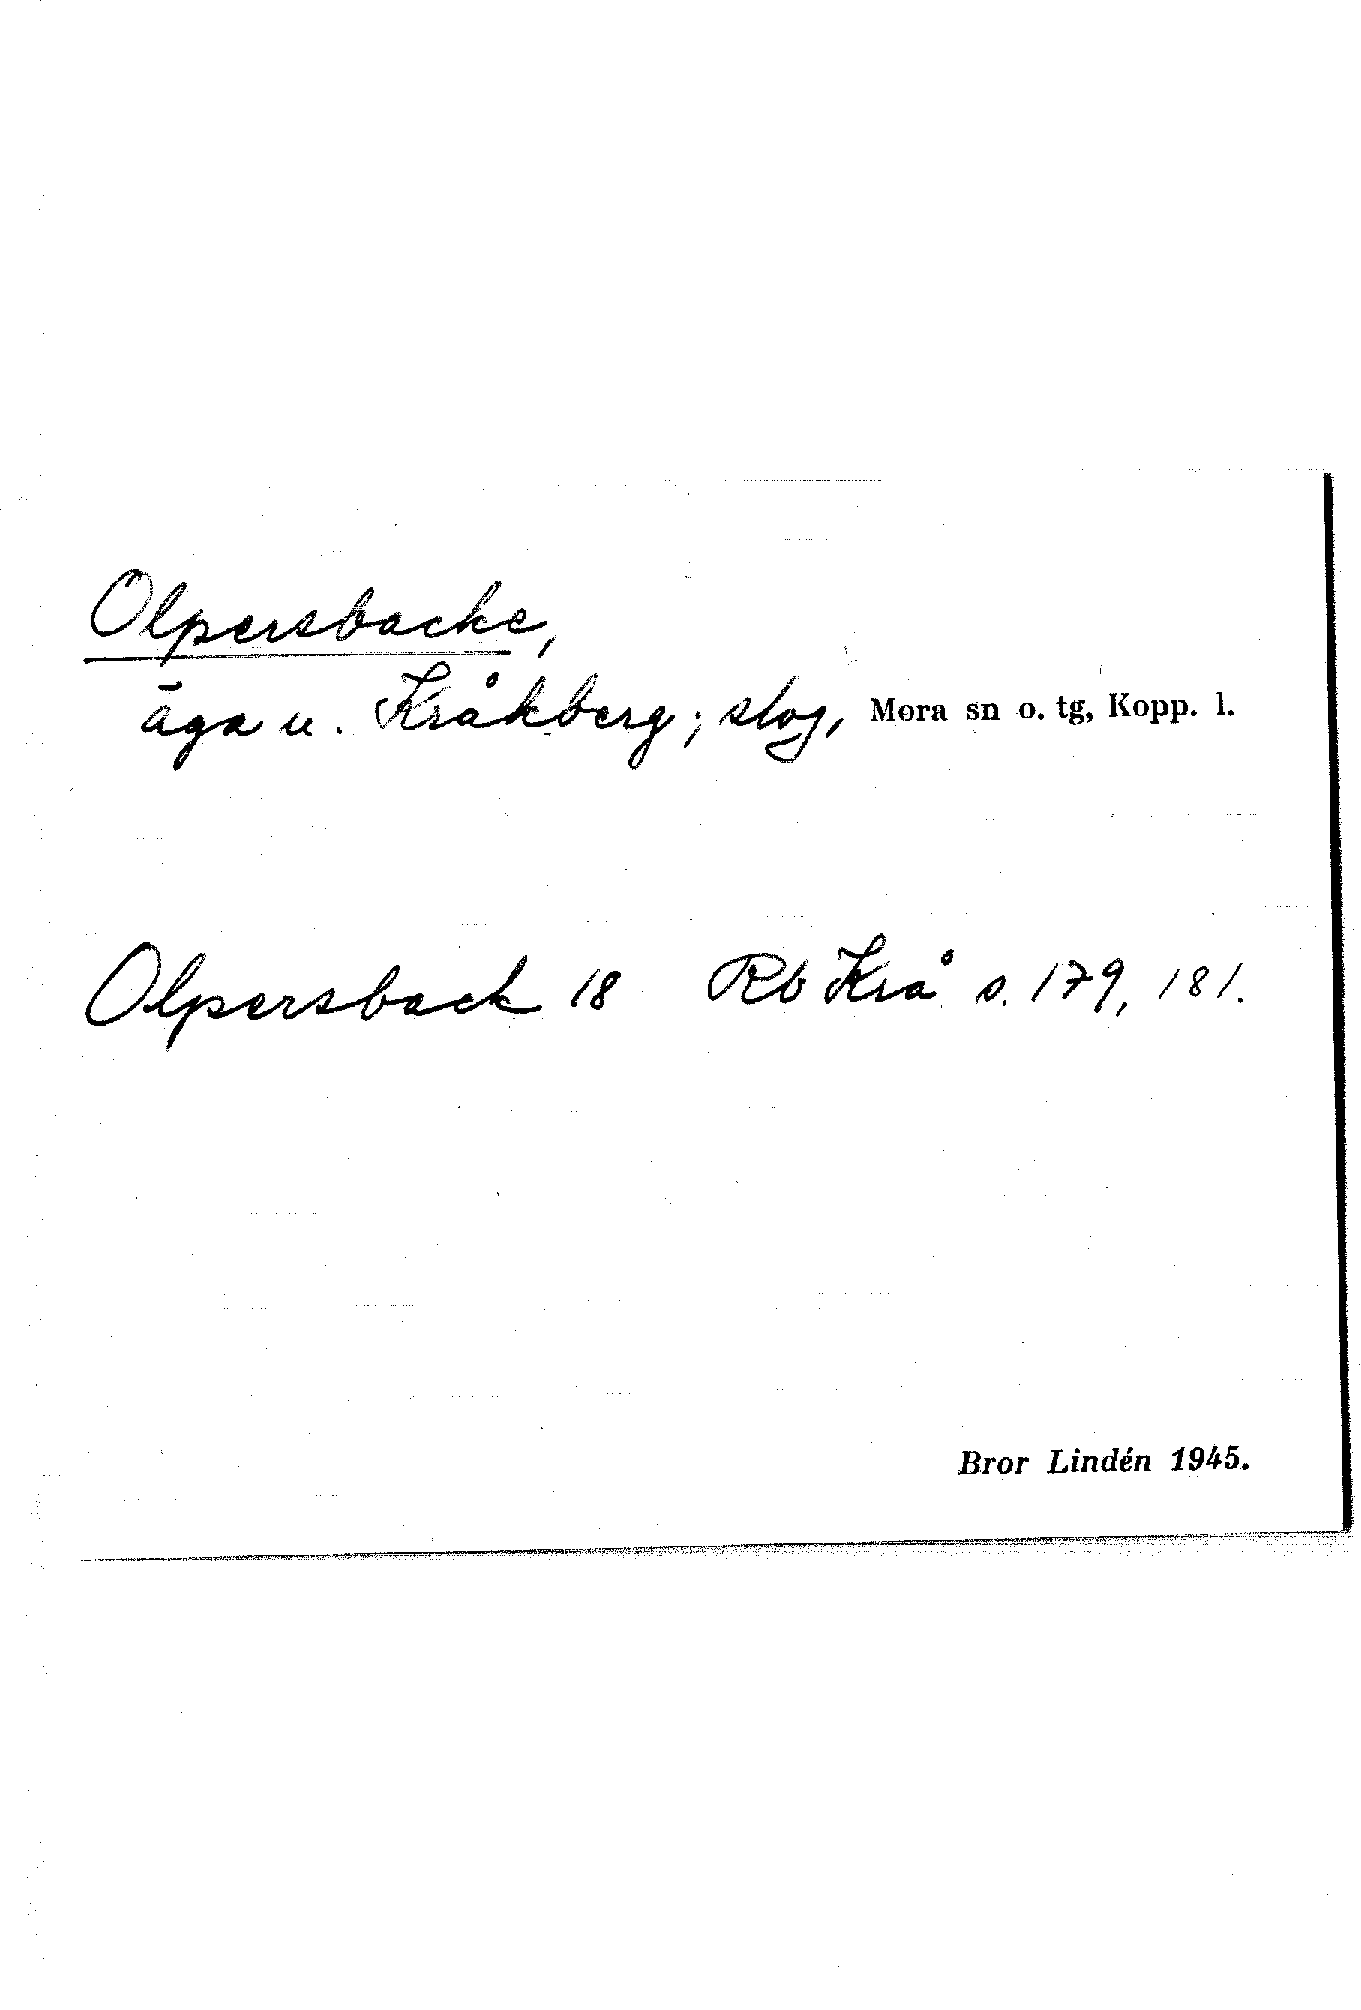 Olpersbacke,
äga u. Kråkberg; slog, Mora sn o. tg, Kopp. l.
Olpersback 18 Rb Krå s. 179, 181.
Bror Lindén 1945.